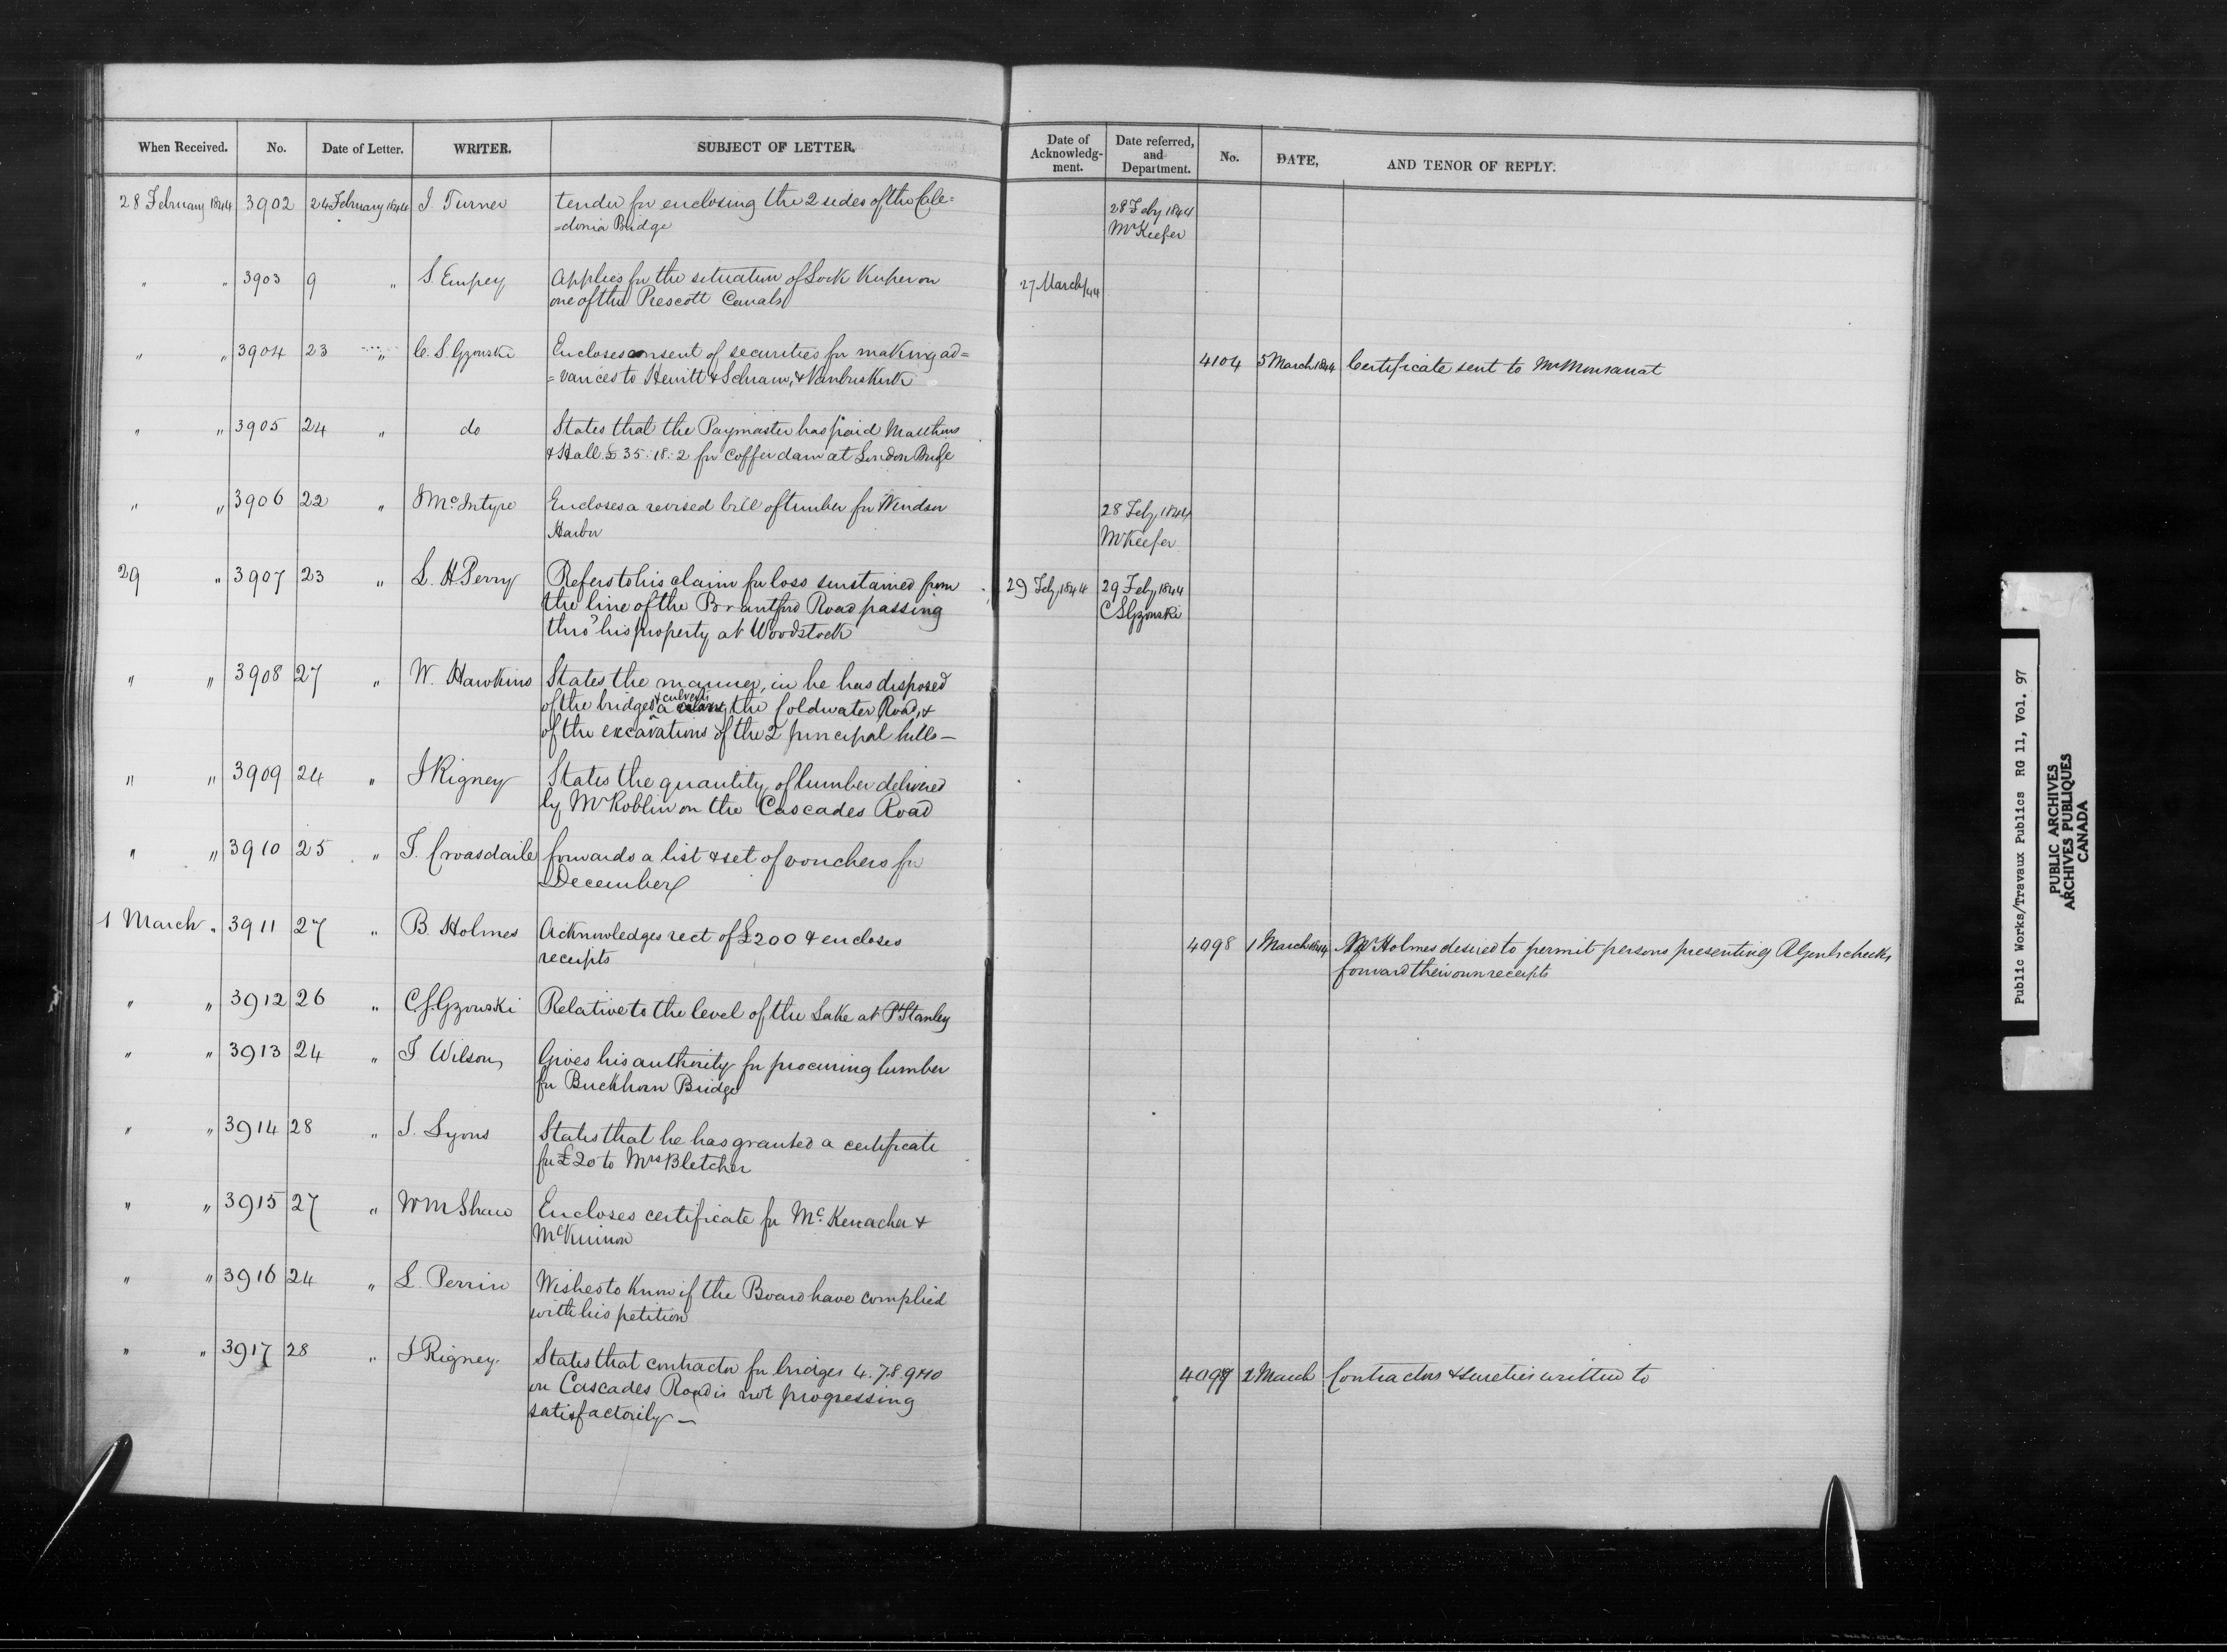 When Received. No. Date of Letter. WRITER. SUBJECT OF LETTER. Date of Acknowledg-ment. Date referred, and Department. No. DATE, AND TENOR OF REPLY.
28 February 1844 3902 24 February 1844 J. Turner tender for enclosing the 2 sides of the Cale=
=donia Bridge
28 Feby 1844
Mr Keefer
" " 3903 9 " S. Empey Applies for the situation of Lock Keeper on
one of the Prescott Canals
27 March/44
" " 3904 23 " C. S. Gzowski Encloses consent of securities for making ad=
=vances to Hewitt & Schram, & Vanbuskirk
4104 5 March 1844 Certificate sent to Mr Monsarrat
" " 3905 24 " do States that the Paymaster has paid Matthews
& Hall £35.18.2 for coffer dam at London Bridge
" " 3906 22 " J McIntyre Encloses a revised bill of timber for Windsor
Harbor
28 Feby 1844
Mr Keefer
29 " 3907 23 " L. H Perry Refers to his claim for loss sustained from
the line of the Brantford Road passing
thro' his property at Woodstock
29 Feby 1844 29 Feby 1844
C S Gzowski
" " 3908 27 " W. Hawkins States the manner, in he has disposed
of the bridges & culverts a the Coldwater Road, &
of the excavations of the 2 principal hills —
" " 3909 24 " J Rigney States the quantity of lumber delivered
by Mr Roblin on the Cascades Road
" " 3910 25 " J. Croasdaile forwards a list & set of vouchers for
December
1 March " 3911 27 " B Holmes Acknowledges rect of £200 & encloses
receipts
4098 1 March 1844 Mr Holmes desired to permit persons presenting checks
forward their own receipts
" " 3912 26 " C.S. Gzowski Relative to the level of the Lake at Pt Stanley
" " 3913 24 " J Wilson Gives his authority for procuring lumber
for Buckhorn Bridge
" " 3914 28 " J. Lyons States that he has granted a certificate
for £20 to Mrs Bletcher
" " 3915 27 " W M Shaw Encloses certificate for &
McKinnon
" " 3916 24 " L. Perrin Wishes to know if the Board have complied
with his petition
" " 3917 28 " J Rigney. States that contractor for bridges 4. 7.8. 9 & 10
on Cascades Road is not progressing
satisfactorily —
4099 2 March Contractors & sureties written to
Public Works/Travaux Publics RG 11, Vol. 97
PUBLIC ARCHIVES
ARCHIVES PUBLIQUES
CANADA